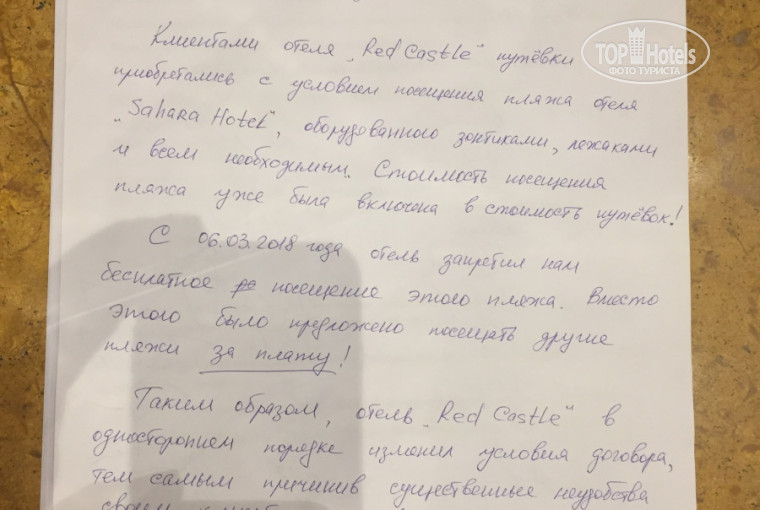 Клиентами отеля „Red Castle“ путёвки
приобретались с условием посещения пляжа отеля
„Sahara Hotel“, оборудованного зонтиками, лежаками
и всем необходимым. Стоимость посещения
пляжа уже была включена в стоимость путёвок!
С 06.03.2018 года отель запретил нам
бесплатное посещение этого пляжа. Вместо
этого было предложено посещать другие
пляжи за плату!
Таким образом, отель „Red Castle“ в
одностороннем порядке изменил условия договора,
тем самым причинив существенные неудобства
своим
TOP Hotels
ФОТО ТУРИСТА